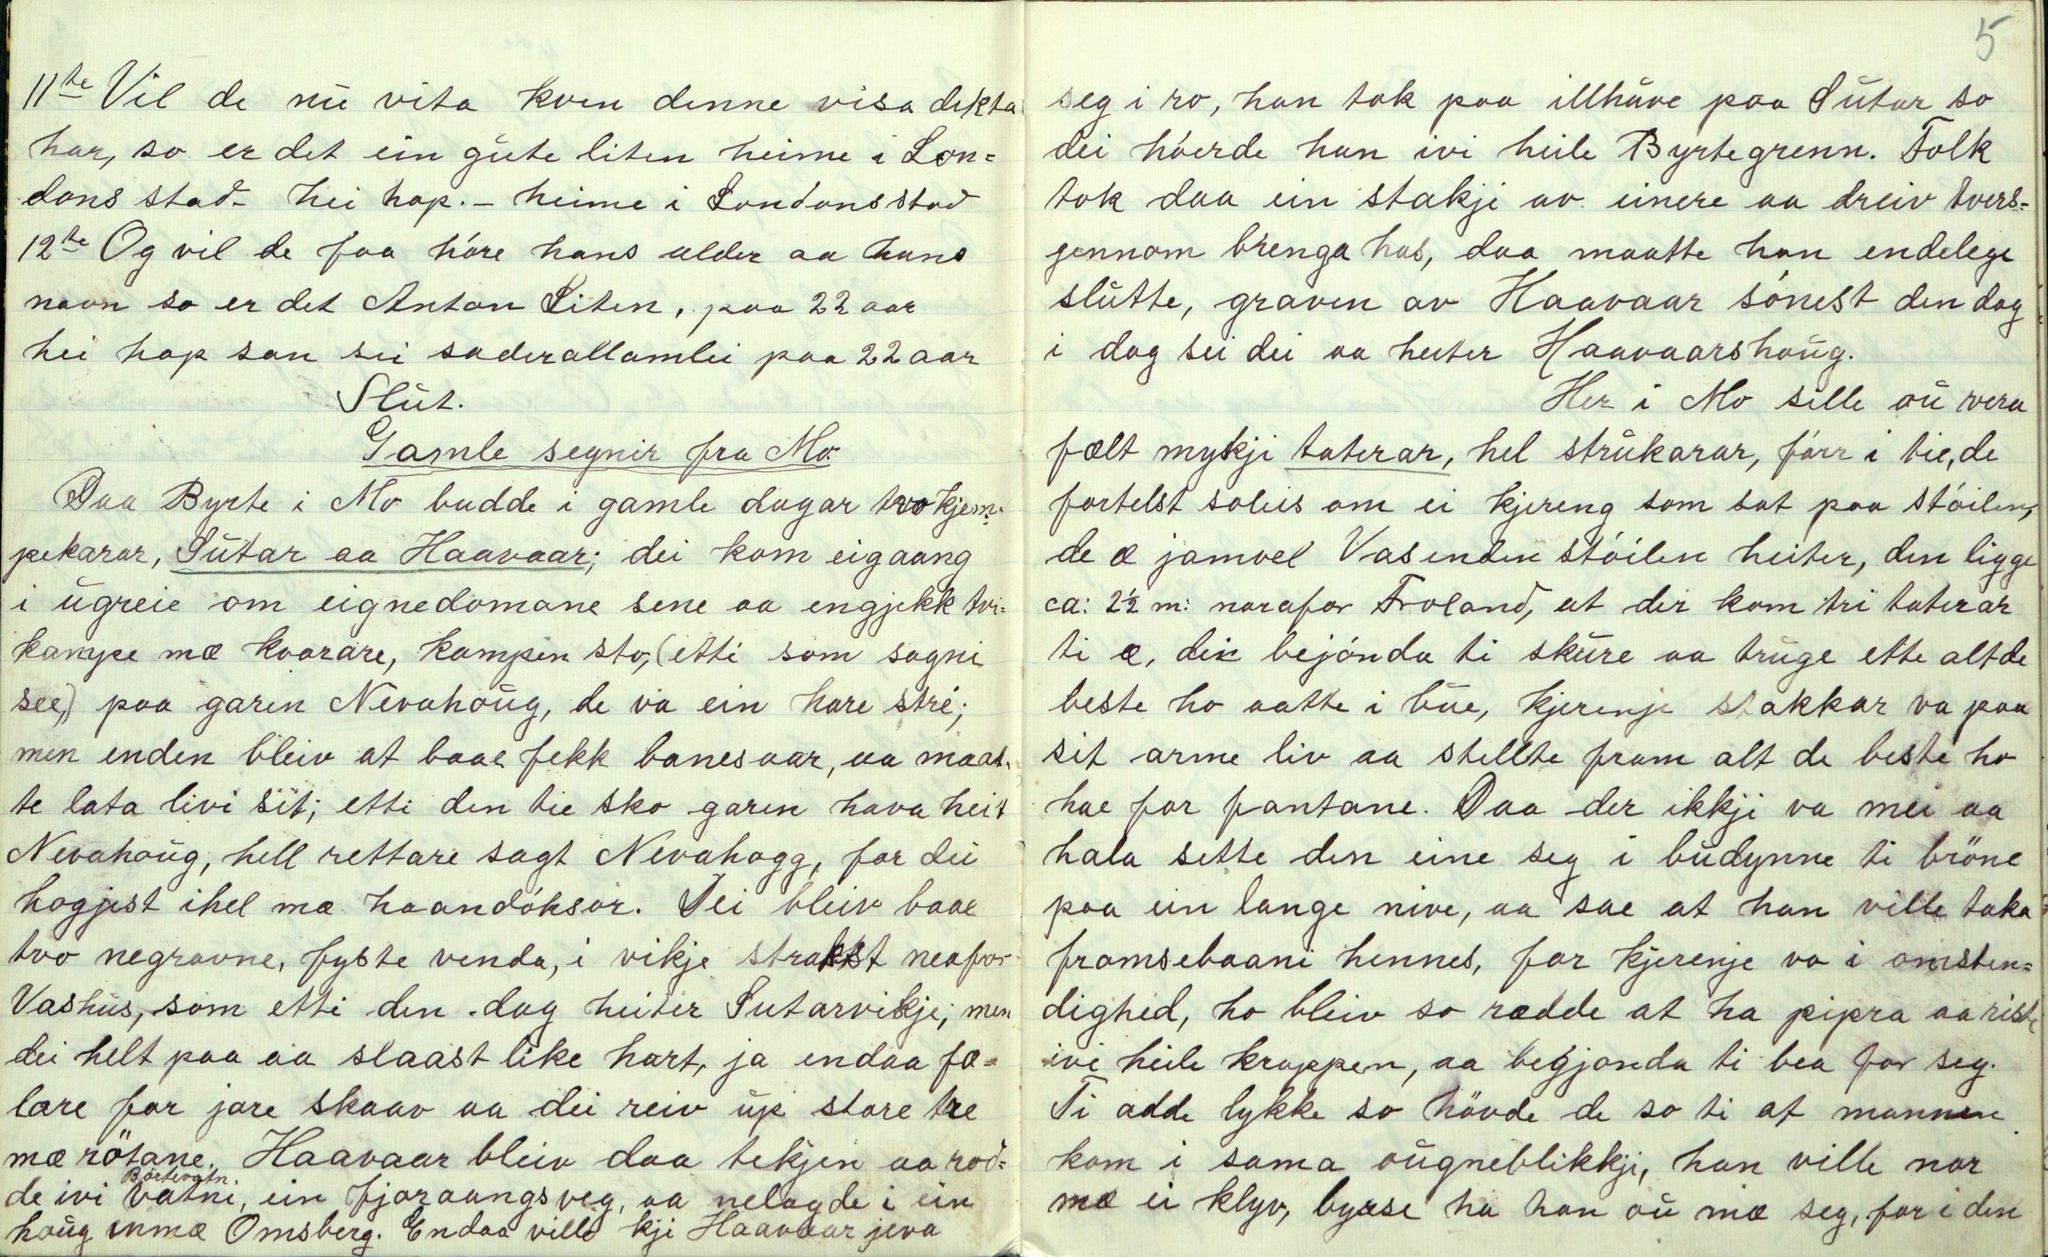 11te Vil de nú vita kven denne visa dikta
har, so er det ein gúte liten heime i Lon=
dons stad - hei hop. - heime i Londons stad
12te Og vil de faa hóre hans alder aa hans
navn so er det Anton Liten, paa 22 aar
hei hop san sei saderallamlei paa 22 aar
Slút.
Gamle segnir fra Mo.
Paa Byrte i Mo budde i gamle dagar tvo kjem=
pekarar, Sútar aa Haavaar; dei kom eigaang
i úgreie om eignedomane sene aa engjekk tvi=
kampe mæ kvorare, kampen sto, (etti som sogni
see,) paa garen Nevahoúg, de va ein hare stré;
men enden bleiv at baae fekk banesaar, aa maat=
te lata livi sit; etti den tie sko garen hava heit
Nevahoúg, hell rettare sagt Nevahogg, for dei
hogjist ihel mæ haandóksar. Dei bleiv baae
tvo negravne, fyste venda, i vikje strakst neafor
Vashús, som etti den dag heiter Sutarvikje; men
dei helt paa aa slaast like hart, ja endaa fæ=
lare for jore skaav aa dei reiv úp store tre
mæ rötane. Haavaar bleiv daa tekjen aa rod=
Börtevatn.
de ivi vatni, ein fjoraangsveg, aa nelagde i ein
houg inmæ Omsberg. Endaa ville kji Haavaar jeva
5
seg i ro, han tok paa illhúve paa Sútar so
dei hóerde han ivi heile Byrtegrenn. Folk
tok daa ein stakji av einere aa dreiv tvers=
gennom brenga has, daa maatte han endelege
slútte, graven av Haavaar sónest den dag
i dag sei dei aa heiter Haavaarshoúg.
Her i Mo sille oú vera
fælt mykji taterar, hel strúkarar, fórr i tie, de
fortelst soleis om ei kjereng som sat paa stóilen,
de æ jamvel Vasenden stóilen heiter, den ligge
ca: 2½ m: norafor Froland, at der kom tri taterar
ti æ, dei bejónda ti skúre aa trúge ette alt de
beste ho aatte i búe, kjerenje stakkar va paa
sit arme liv aa stellte fram alt de beste ho
hae for fantane. Daa der ikkji va mei aa
hala sette den eine seg i búdynne ti bröne
paa ein lange nive, aa sae at han ville taka
framsebaani hennes, for kjerenje va i omsten=
dighed, ho bleiv so rædde at ha pipra aa riste
ivi heile kroppen, aa begjonda ti bea for seg.
Ti adde lykke so hövde de so ti at mannen
kom i sama oúgneblikkji, han ville nor
mæ ei klyv, byrse ha han oú mæ seg, for i den